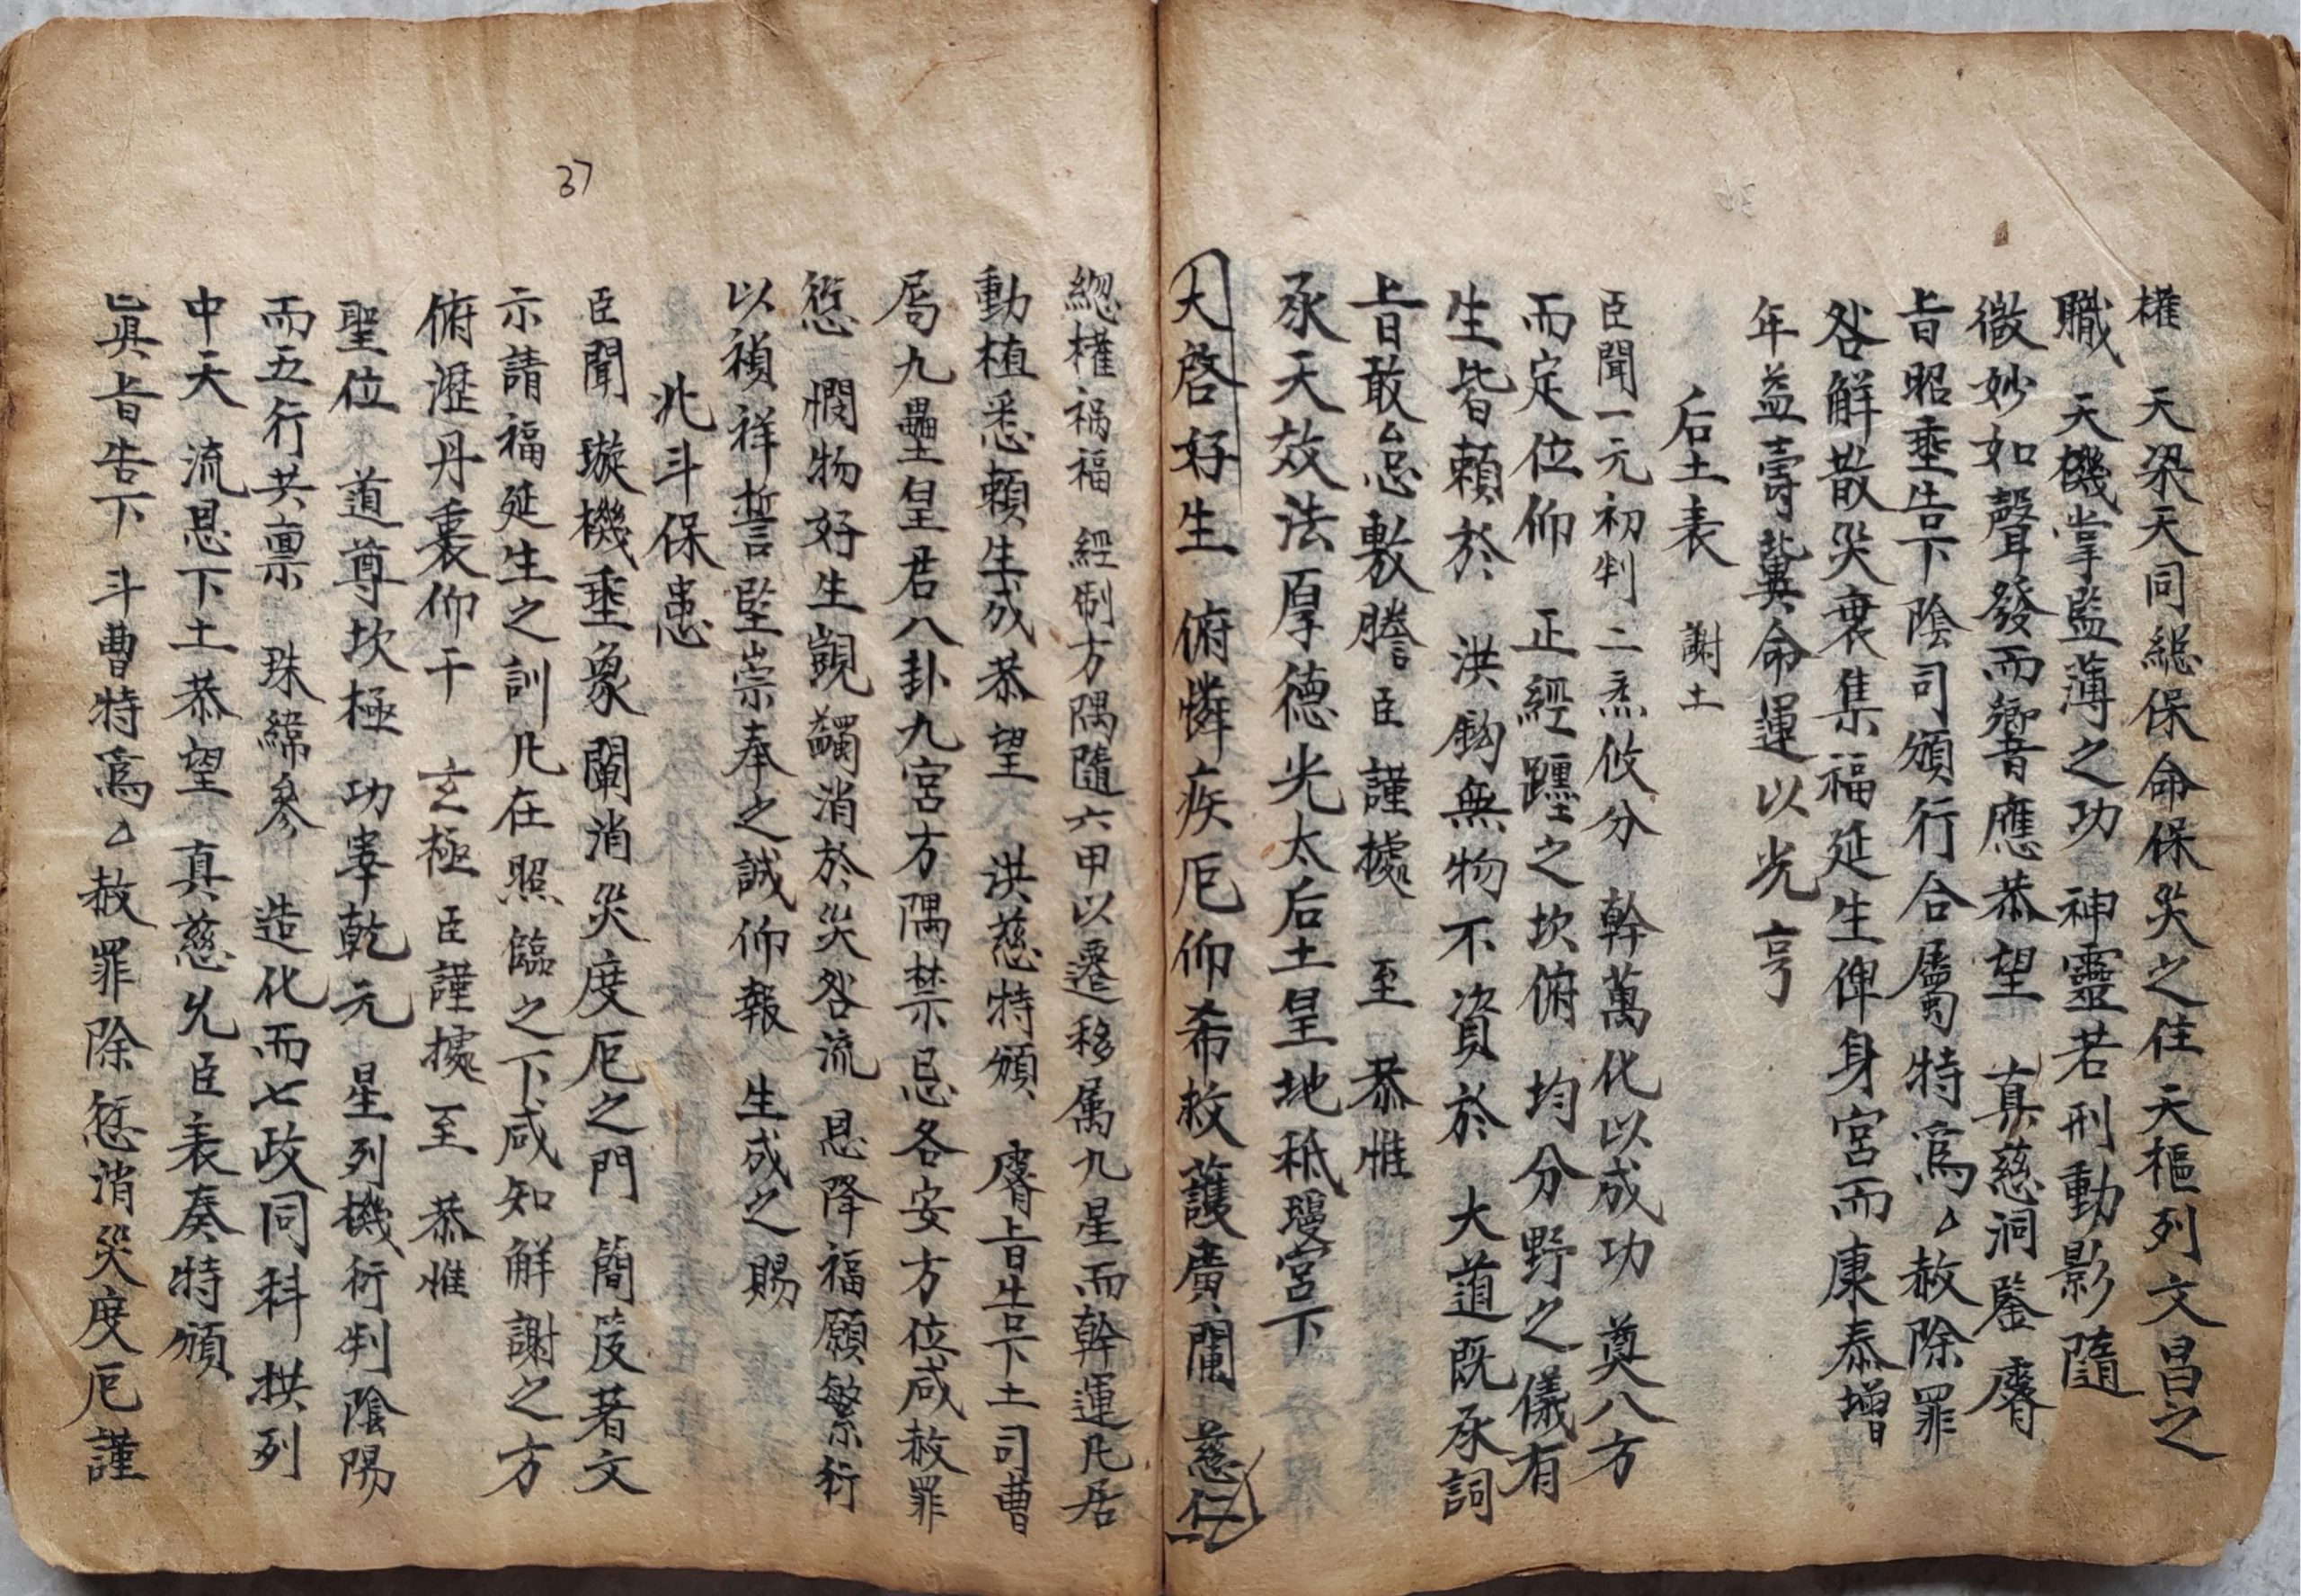 權　天梁天同縂保命保災之住天樞列文昌之
職　天機掌監薄之功　神靈若刑動影隨
微妙如聲發而響音應恭望　真慈洞鑒　膺
旨昭垂告下陰司頒行合屬特為厶赦除罪
咎解散災衰集福延生俾身宮而康泰增
年益壽冀命運以光亨
后土表　謝土
臣聞一元初判二炁攸分　幹萬化以成功　奠八方
而定位仰　正經躔之坎俯　均分野之儀有
生皆賴於　洪鈞無物不資於　大道既承詞
旨敢厶忌敷謄臣謹據　至　恭惟
承天效法厚德光太后土皇地秪瓊宮下
大啓好生　俯憐疾厄仰希救護廣闡　慈仁
縂權禍福　經制方隅隨六甲以遷移屬九星而幹運凡居
動植悉賴生成恭望　洪慈特頒　膺旨告下土司曹
局九壘皇君八卦九宮方隅禁忌各安方位咸赦罪
愆　憫物好生覬蠲消於災咎流　恩降福願繁衍
以禎祥誓堅崇奉之誠仰報　生成之賜
北斗保患
臣聞　璇機垂象闡消災度厄之門　簡笈著文
示請福延生之訓凡在照臨之下咸知解謝之方
俯瀝丹衷仰干　玄極臣謹據至　恭惟
聖位　道尊坎極　功宰乾元　星列機衍判陰陽
而五行共禀　珠緯參　造化而七政同科　拱列
中天　流恩下土恭望　真慈允臣表奏特頒
眞旨告下　斗曹特為厶赦罪除愆消災度厄謹
37